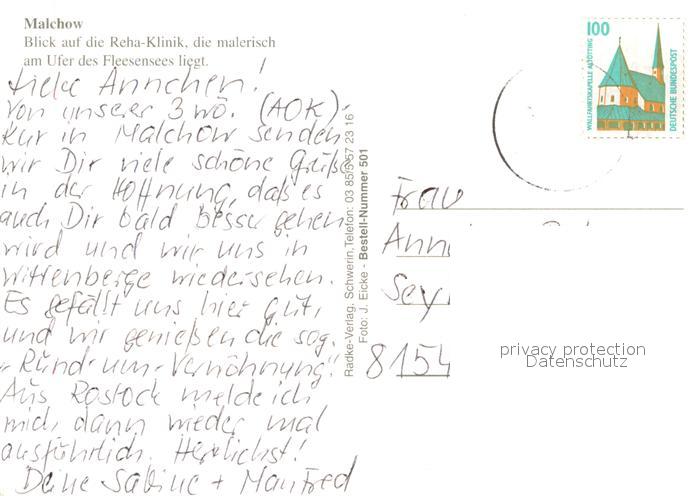 Malchow
Blick auf die Reha-Klinik, die malerisch
am Ufer des Fleesensees liegt.
Liebe Ännchen!
Von unserer 3 wö. (AOK)-
Kur in Malchow senden
wir Dir viele schöne Grüße
in der Hoffnung, daß es
auch Dir bald besser gehen
wird und wir uns in
Wittenberge wiedersehen.
Es gefällt uns hier gut,
und wir genießen die sog.
„Rund-um-Verwöhnung“!
Aus Rostock melde ich
mich dann wieder mal
ausführlich. Herzlichst!
Deine Sabine + Manfred
Radke-Verlag, Schwerin, Telefon: 03 85/5 57 23 16
Foto: J. Eicke - Bestell-Nummer 501
100
WALLFAHRTSKAPELLE ALTÖTTING
DEUTSCHE BUNDESPOST
Frau
Ann
Sey
8154
privacy protection
Datenschutz